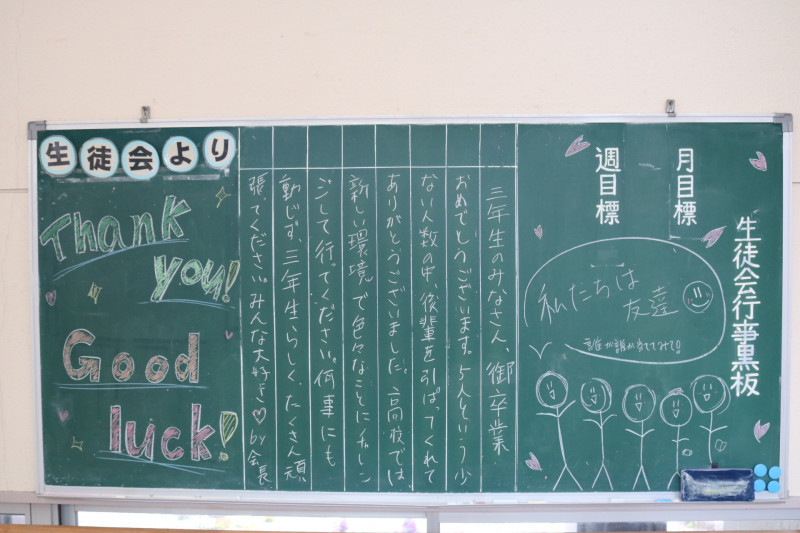 生徒会行事黒板
月目標
週目標
私たちは
友達
誰が誰か当ててみて!!
三年生のみなさん、御卒業
おめでとうございます。5人という少
ない人数の中、後輩を引ぱってくれて
ありがとうございました。高校では、
新しい環境で色々なことにチャレン
ジして行てください。何事にも
動じず、三年生らしく、たくさん頑
張てください。みんな大好き♡by会長
生徒会より
Thank
you!
Good
luck!